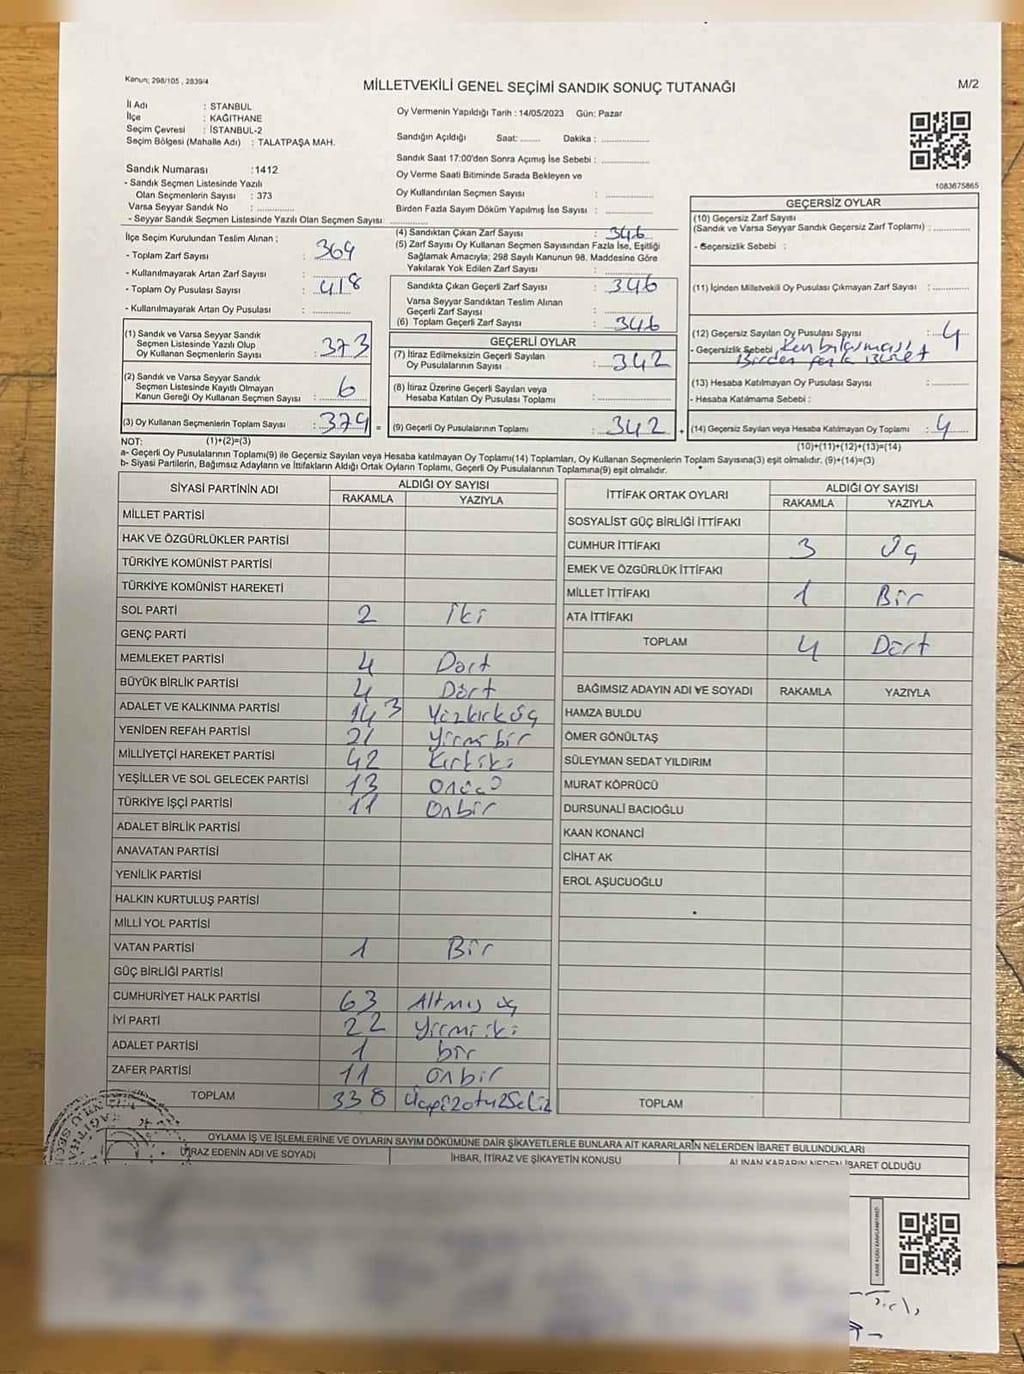 Kanun; 298/105 , 2839/4
MİLLETVEKİLİ GENEL SEÇİMİ SANDIK SONUÇ TUTANAĞI
M/2
İl Adı : STANBUL
İlçe : KAĞITHANE
Seçim Çevresi : İSTANBUL-2
Seçim Bölgesi (Mahalle Adı) : TALATPAŞA MAH.
Sandık Numarası :1412
- Sandık Seçmen Listesinde Yazılı
Olan Seçmenlerin Sayısı : 373
Varsa Seyyar Sandık No :
- Seyyar Sandık Seçmen Listesinde Yazılı Olan Seçmen Sayısı :
Oy Vermenin Yapıldığı Tarih : 14/05/2023 Gün: Pazar
Sandığın Açıldığı Saat: ....... Dakika : ...............
Sandık Saat 17:00'den Sonra Açımış İse Sebebi : ...............
Oy Verme Saati Bitiminde Sırada Bekleyen ve
Oy Kullandırılan Seçmen Sayısı : ...............
Birden Fazla Sayım Döküm Yapılmış İse Sayısı : ...............
1083675865
İlçe Seçim Kurulundan Teslim Alınan ;
- Toplam Zarf Sayısı : 369
- Kullanılmayarak Artan Zarf Sayısı :
- Toplam Oy Pusulası Sayısı : 418
- Kullanılmayarak Artan Oy Pusulası :
(1) Sandık ve Varsa Seyyar Sandık
Seçmen Listesinde Yazılı Olup
Oy Kullanan Seçmenlerin Sayısı : 373
(2) Sandık ve Varsa Seyyar Sandık
Seçmen Listesinde Kayıtlı Olmayan
Kanun Gereği Oy Kullanan Seçmen Sayısı : 6
(3) Oy Kullanan Seçmenlerin Toplam Sayısı : 379 =
(4) Sandıktan Çıkan Zarf Sayısı : 346
(5) Zarf Sayısı Oy Kullanan Seçmen Sayısından Fazla İse, Eşitliği
Sağlamak Amacıyla; 298 Sayılı Kanunun 98. Maddesine Göre
Yakılarak Yok Edilen Zarf Sayısı :
Sandıkta Çıkan Geçerli Zarf Sayısı : 346
Varsa Seyyar Sandıktan Teslim Alınan
Geçerli Zarf Sayısı :
(6) Toplam Geçerli Zarf Sayısı : 346
GEÇERLİ OYLAR
(7) İtiraz Edilmeksizin Geçerli Sayılan
Oy Pusulalarının Sayısı : 342
(8) İtiraz Üzerine Geçerli Sayılan veya
Hesaba Katılan Oy Pusulası Toplamı :
(9) Geçerli Oy Pusulalarının Toplamı : 342 +
GEÇERSİZ OYLAR
(10) Geçersiz Zarf Sayısı
(Sandık ve Varsa Seyyar Sandık Geçersiz Zarf Toplamı) :
- Geçersizlik Sebebi :
(11) İçinden Milletvekili Oy Pusulası Çıkmayan Zarf Sayısı :
(12) Geçersiz Sayılan Oy Pusulası Sayısı : 4
- Geçersizlik Sebebi
Birden fazla
(13) Hesaba Katılmayan Oy Pusulası Sayısı :
- Hesaba Katılmama Sebebi :
(14) Geçersiz Sayılan veya Hesaba Katılmayan Oy Toplamı : 4
NOT: (1)+(2)=(3) (10)+(11)+(12)+(13)=(14)
a- Geçerli Oy Pusulalarının Toplamı(9) ile Geçersiz Sayılan veya Hesaba katılmayan Oy Toplamı(14) Toplamları, Oy Kullanan Seçmenlerin Toplam Sayısına(3) eşit olmalıdır. (9)+(14)=(3)
b- Siyasi Partilerin, Bağımsız Adayların ve İttifakların Aldığı Ortak Oyların Toplamı, Geçerli Oy Pusulalarının Toplamına(9) eşit olmalıdır.
SİYASİ PARTİNİN ADI ALDIĞI OY SAYISI
RAKAMLA YAZIYLA
MİLLET PARTİSİ
HAK VE ÖZGÜRLÜKLER PARTİSİ
TÜRKİYE KOMÜNİST PARTİSİ
TÜRKİYE KOMÜNİST HAREKETİ
SOL PARTİ 2 İki
GENÇ PARTİ
MEMLEKET PARTİSİ 4 Dört
BÜYÜK BİRLİK PARTİSİ 4 Dört
ADALET VE KALKINMA PARTİSİ 143 Yüzkırküç
YENİDEN REFAH PARTİSİ 21 Yirmi bir
MİLLİYETÇİ HAREKET PARTİSİ 42 Kırkiki
YEŞİLLER VE SOL GELECEK PARTİSİ 13 Onüç
TÜRKİYE İŞÇİ PARTİSİ 11 Onbir
ADALET BİRLİK PARTİSİ
ANAVATAN PARTİSİ
YENİLİK PARTİSİ
HALKIN KURTULUŞ PARTİSİ
MİLLİ YOL PARTİSİ
VATAN PARTİSİ 1 Bir
GÜÇ BİRLİĞİ PARTİSİ
CUMHURİYET HALK PARTİSİ 63 Altmış üç
İYİ PARTİ 22 Yirmi iki
ADALET PARTİSİ 1 bir
ZAFER PARTİSİ 11 Onbir
TOPLAM 338 Üçyüzotuzsekiz
İTTİFAK ORTAK OYLARI ALDIĞI OY SAYISI
RAKAMLA YAZIYLA
SOSYALİST GÜÇ BİRLİĞİ İTTİFAKI
CUMHUR İTTİFAKI 3 Üç
EMEK VE ÖZGÜRLÜK İTTİFAKI
MİLLET İTTİFAKI 1 Bir
ATA İTTİFAKI
TOPLAM 4 Dört
BAĞIMSIZ ADAYIN ADI VE SOYADI RAKAMLA YAZIYLA
HAMZA BULDU
ÖMER GÖNÜLTAŞ
SÜLEYMAN SEDAT YILDIRIM
MURAT KÖPRÜCÜ
DURSUNALİ BACIOĞLU
KAAN KONANCİ
CİHAT AK
EROL AŞUCUOĞLU
TOPLAM
OYLAMA İŞ VE İŞLEMLERİNE VE OYLARIN SAYIM DÖKÜMÜNE DAİR ŞİKAYETLERLE BUNLARA AİT KARARLARIN NELERDEN İBARET BULUNDUKLARI
İTİRAZ EDENİN ADI VE SOYADI İHBAR, İTİRAZ VE ŞİKAYETİN KONUSU ALINAN KARARIN NEDEN İBARET OLDUĞU